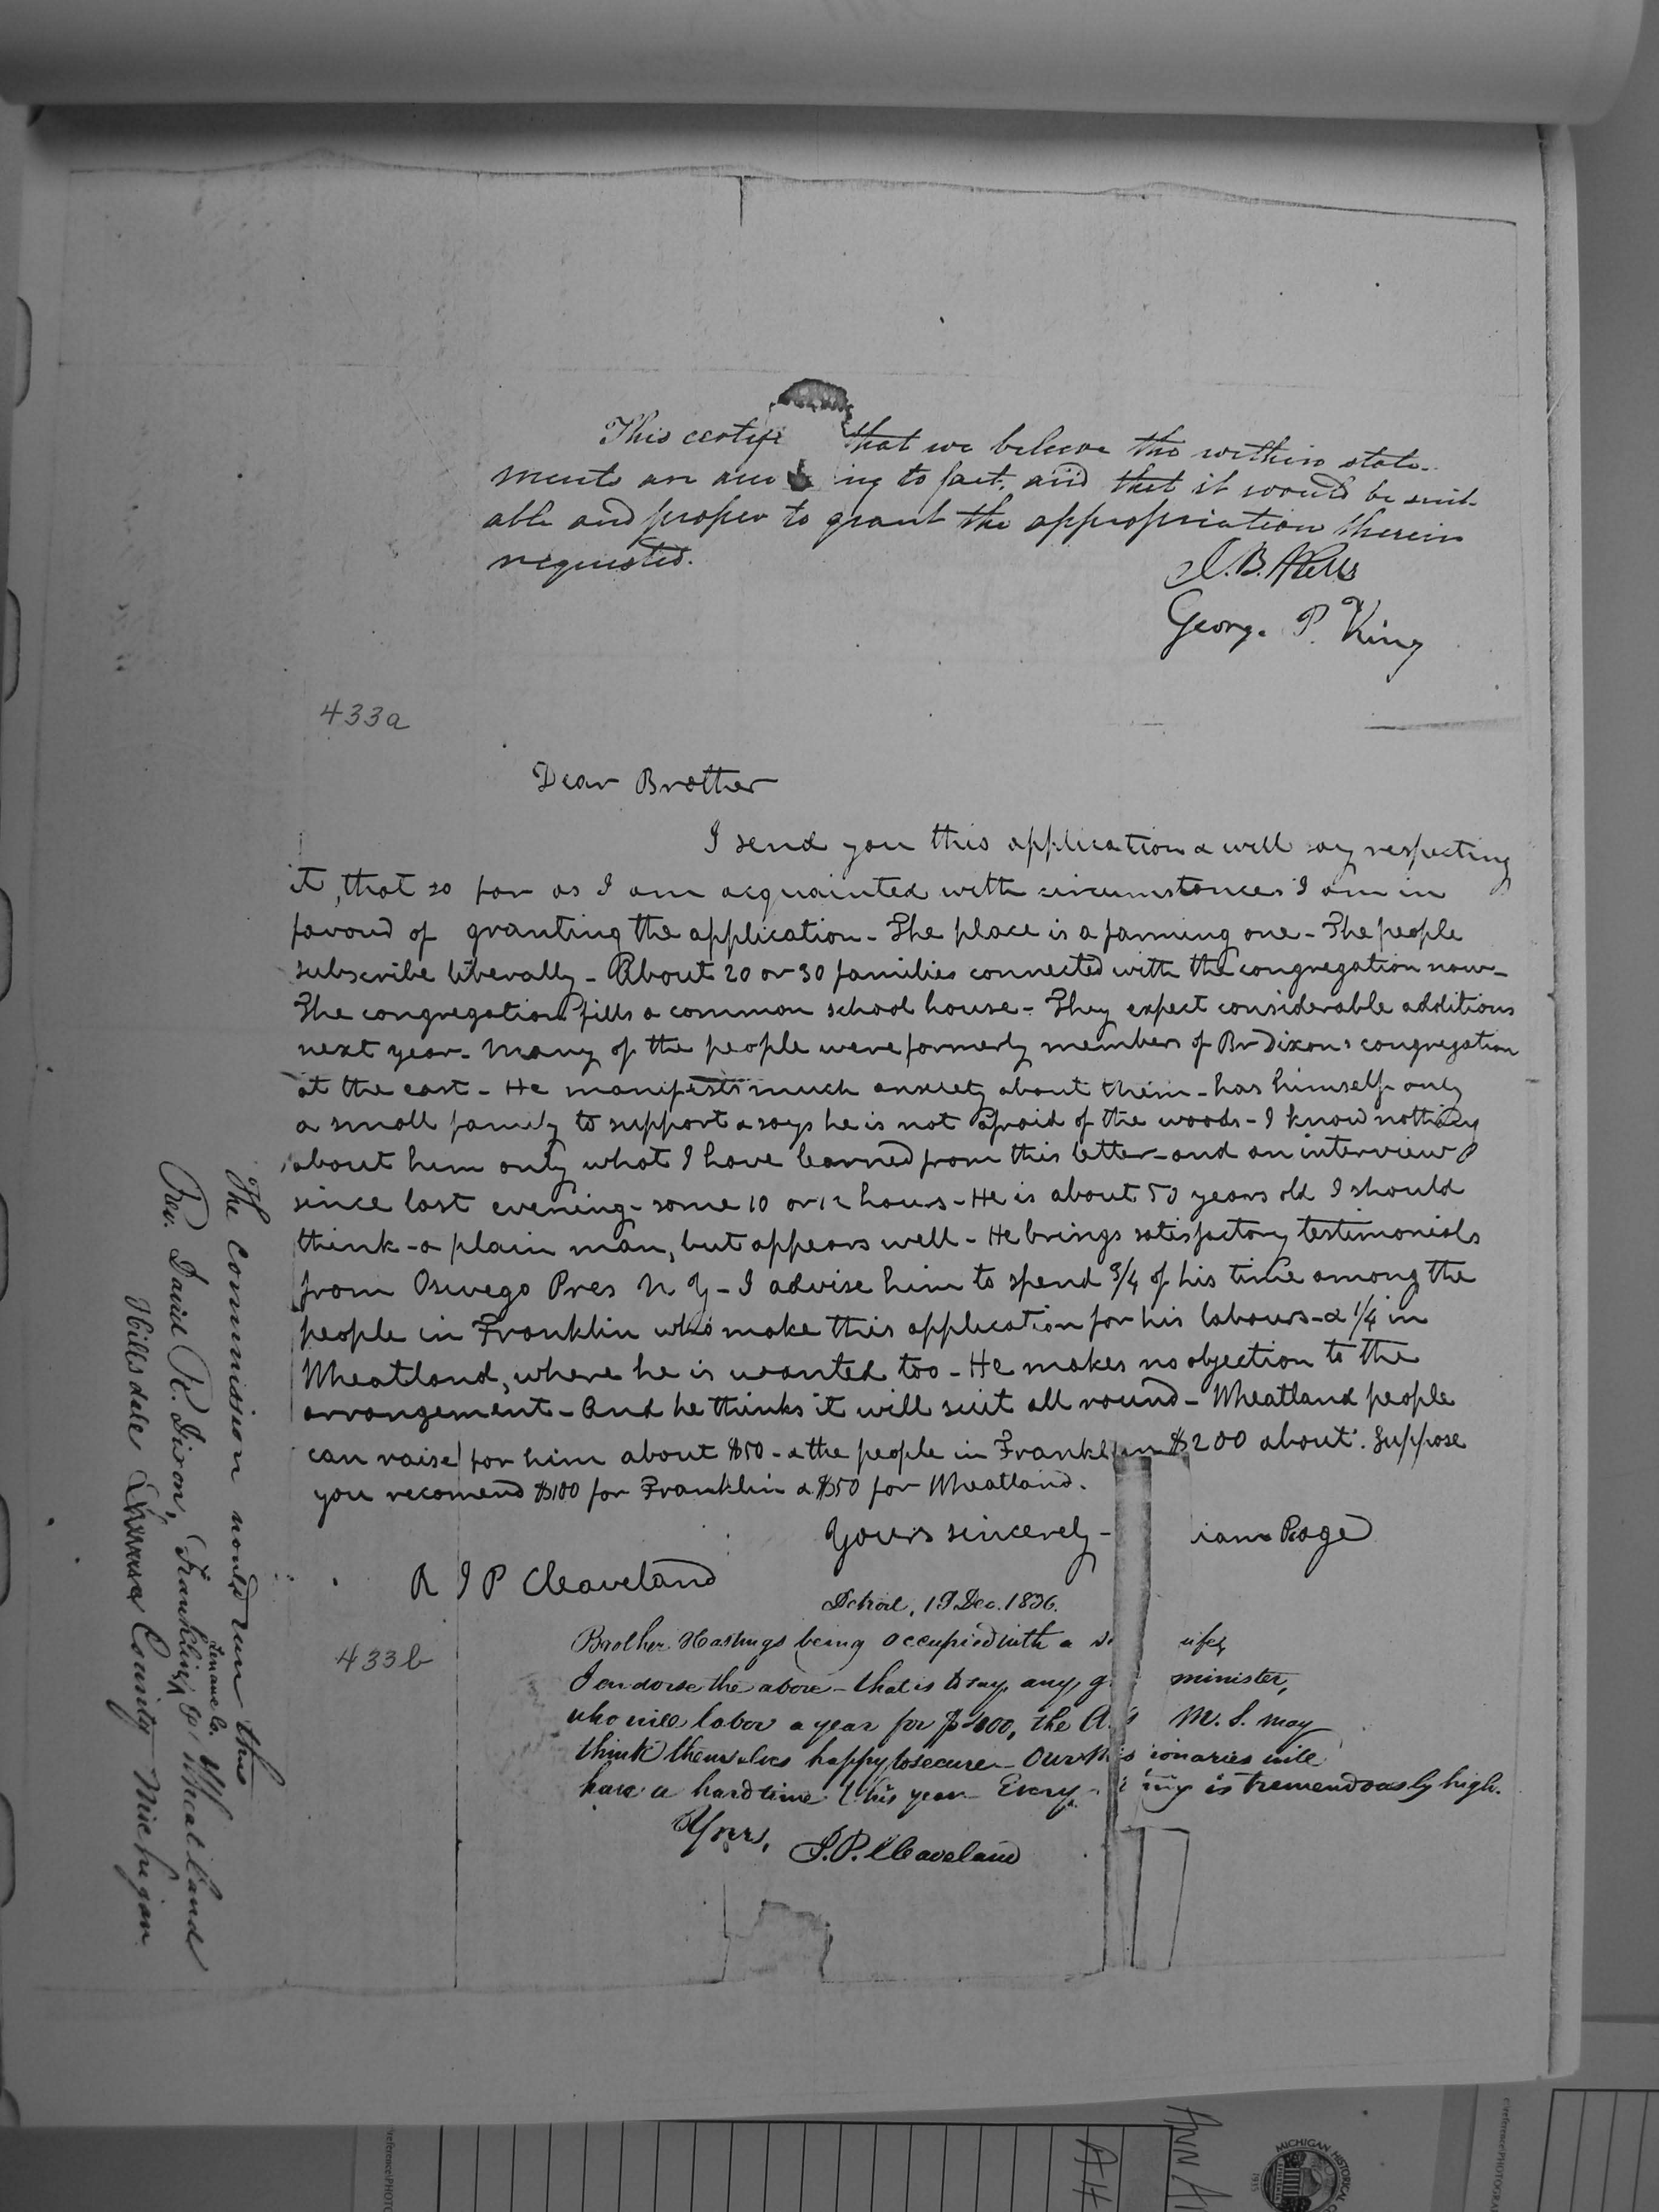 This certify that we believe the within state-
ments are acco ing to fact, and that it would be suit-
able and proper to grant the appropriation therein
requested.
George P. King
433a
Dear Brother
I send you this application & will say respecting
it, that so far as I am acquainted with circumstances I am in
favour of granting the application - The place is a farming one - The people
subscribe liberally - About 20 or 30 families connected with the congregation now -
The congregation fills a common school house - They expect considerable additions
next year - Many of the people were formerly members of Br Dixons congregation
at the east - He manifests much anxiety about them - has himself only
a small family to support & says he is not afraid of the woods - I know nothing
about him only what I have learned from this letter - and an interview
since last evening - some 10 or 12 hours - He is about 50 years old I should
think - a plain man, but appears well - He brings satisfactory testimonials
from Oswego Pres N Y - I advise him to spend 3/4 of his time among the
people in Franklin who make this application for his labours - & 1/4 in
Wheatland, where he is wanted too - He makes no objection to the
arrangement - And he thinks it will suit all round - Wheatland people
can raise for him about $50 - & the people in Franklin $200 about. Suppose
you recomend $100 for Franklin & $50 for Wheatland.
Yours sincerely - iam Page
R J P Cleaveland
Detroit, 19 Dec. 1836.
433b
Brother Hastings being occupied with a si wife,
I endorse the above - that is to say, any g minister,
who will labor a year for $400, the A. M. S. may
think themselves happy to secure - Our Mis ionaries will
have a hard time this year - Every ing is tremendously high.
Yours, J. P. Cleaveland
The Commission would run thus
Rev. David R. Dixon, Franklin, Lenawe Co. & Wheatland
Hillsdale County Michigan
MICHIGAN HISTORICAL